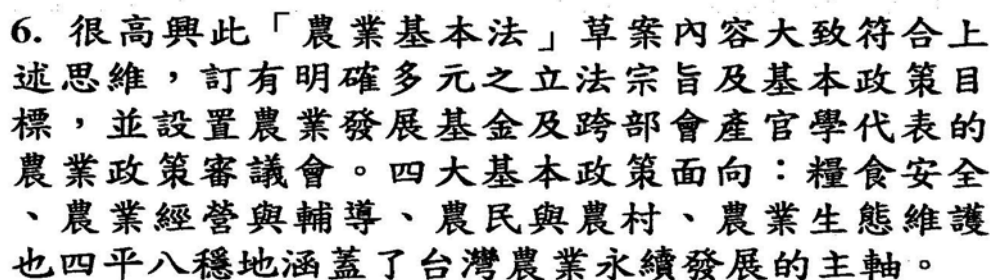 6. 很高興此「農業基本法」草案內容大致符合上
述思維，訂有明確多元之立法宗旨及基本政策目
標，並設置農業發展基金及跨部會產官學代表的
農業政策審議會。四大基本政策面向：糧食安全
、農業經營與輔導、農民與農村、農業生態維護
也四平八穩地涵蓋了台灣農業永續發展的主軸。